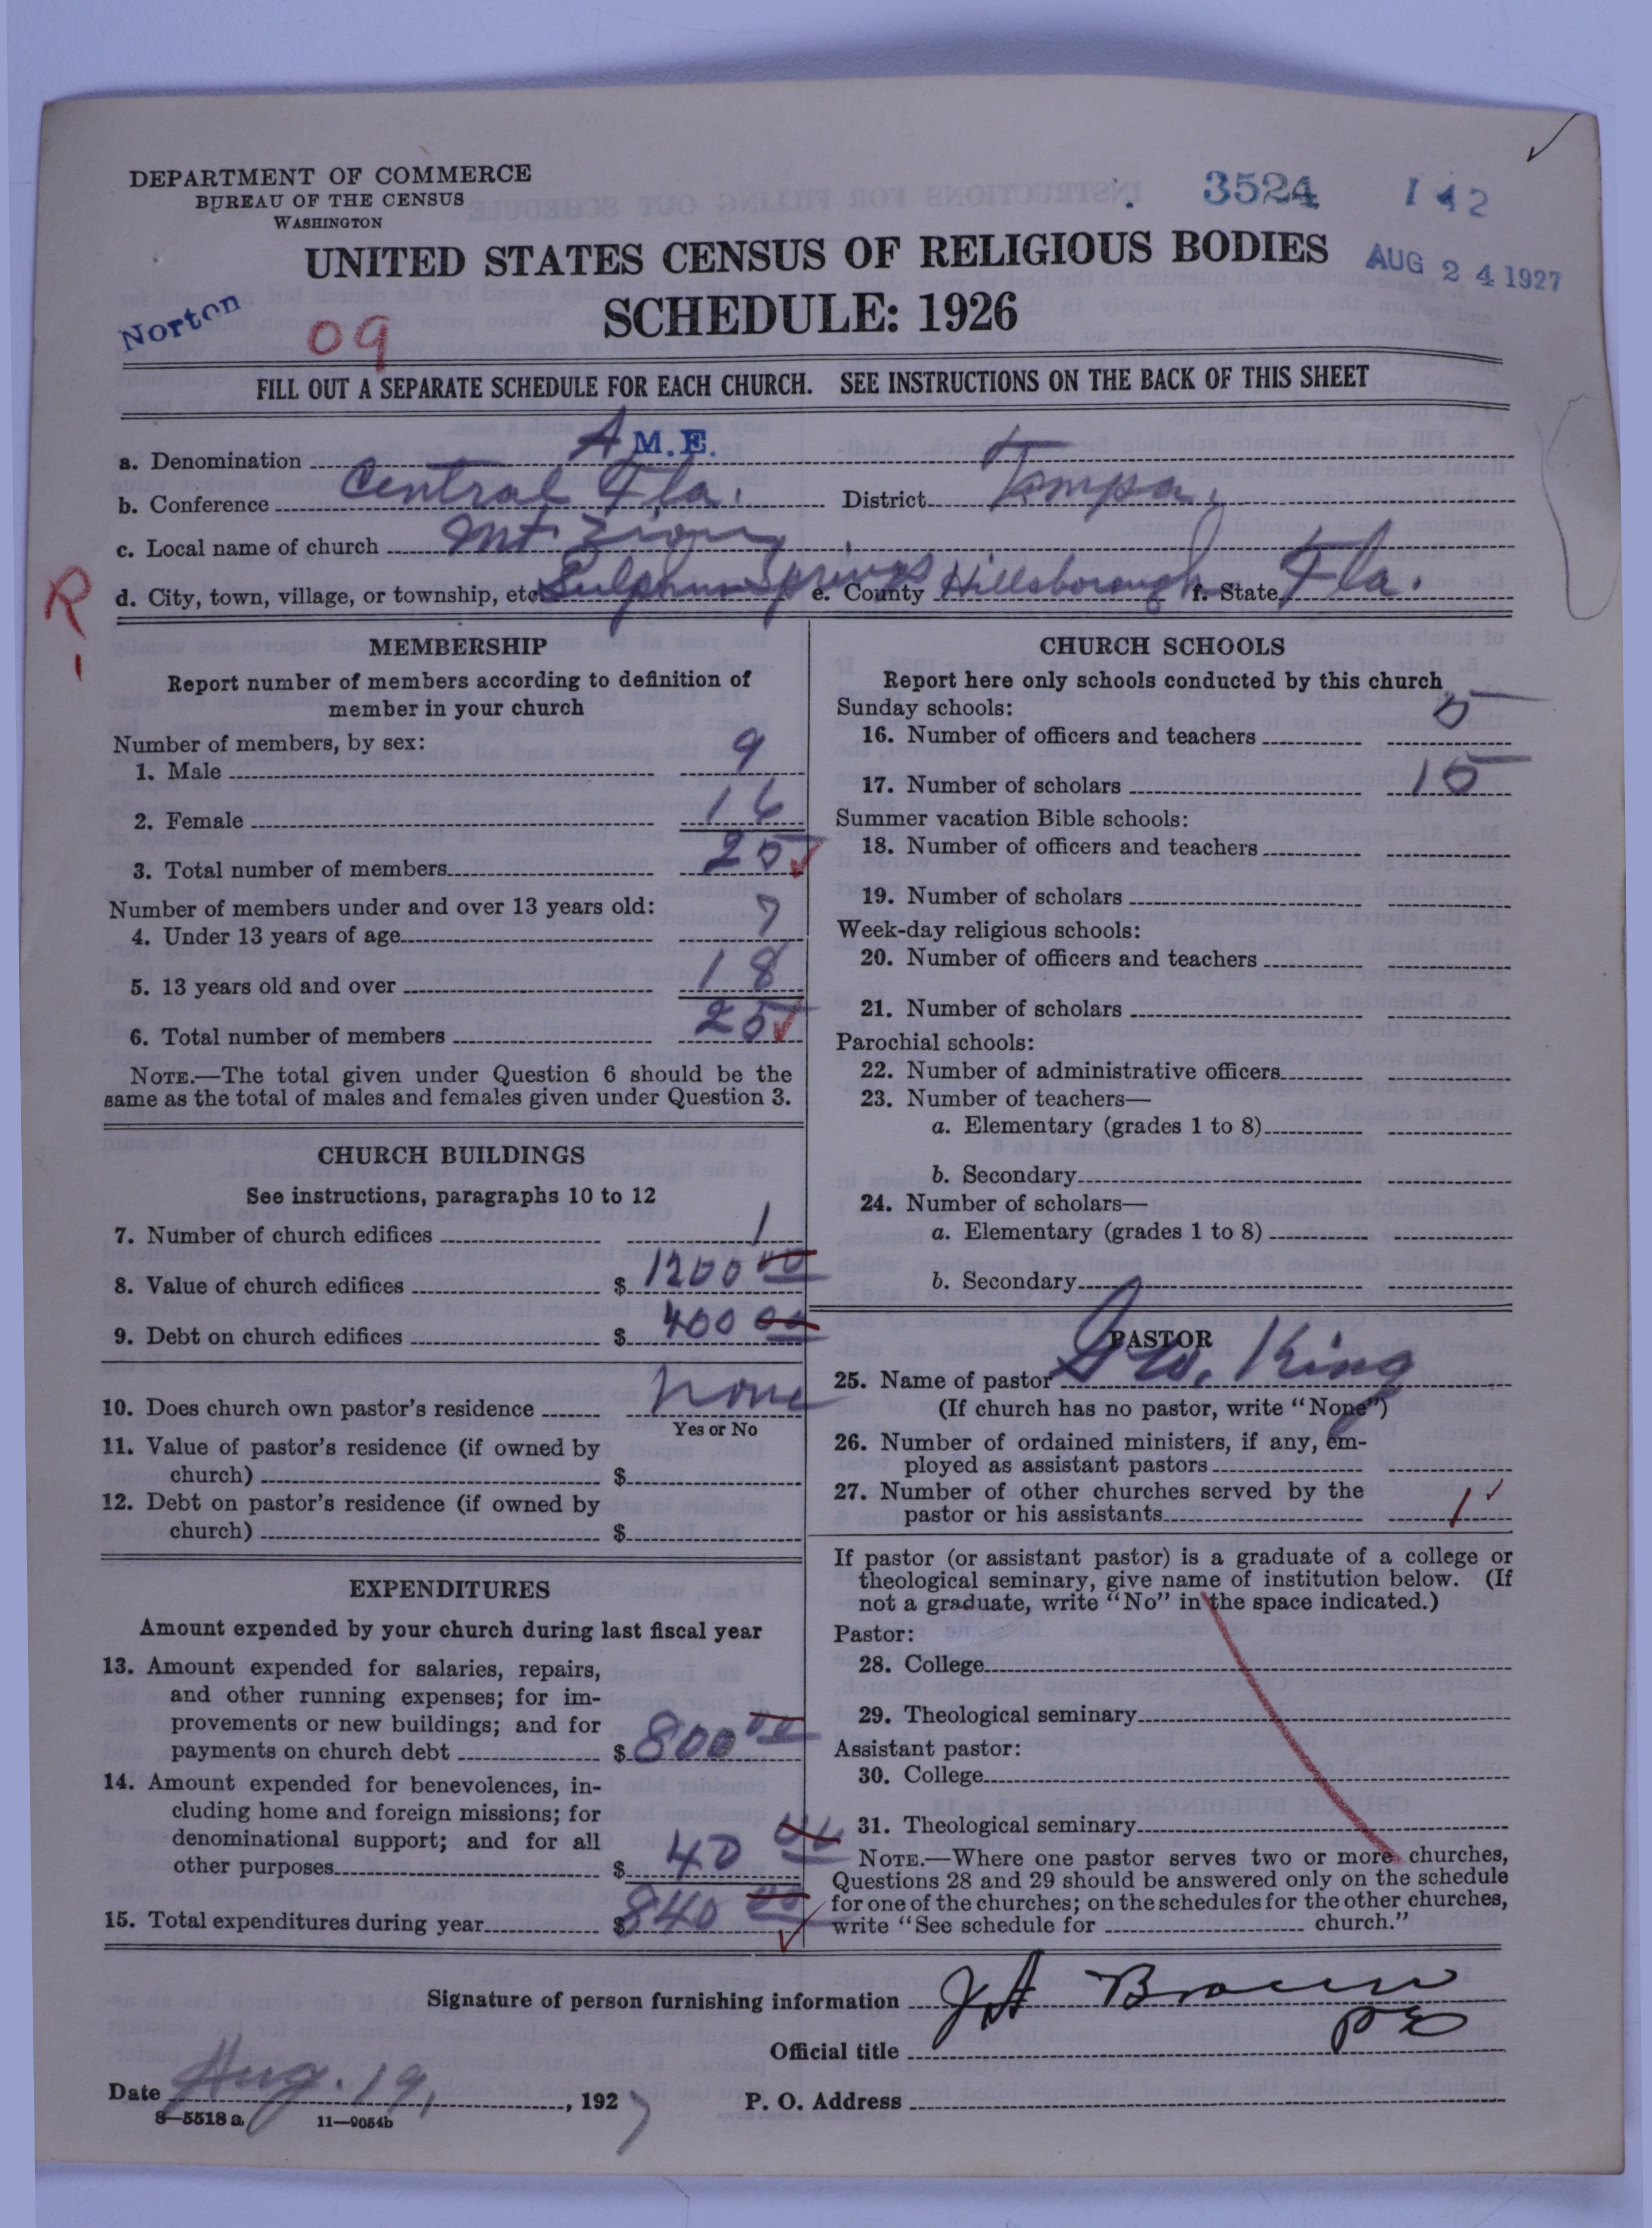 DEPARTMENT OF COMMERCE
BUREAU OF THE CENSUS
WASHINGTON
3524 142
UNITED STATES CENSUS OF RELIGIOUS BODIES
AUG 24 1927
SCHEDULE: 1926
Norton
09
FILL OUT A SEPARATE SCHEDULE FOR EACH CHURCH. SEE INSTRUCTIONS ON THE BACK OF THIS SHEET
a. Denomination A M.E.
b. Conference Central Fla. District Tampa,
c. Local name of church Mt. Zion
R d. City, town, village, or township, etc Sulphur Springs e. County Hillsborough f. State Fla.
MEMBERSHIP
Report number of members according to definition of
member in your church
Number of members, by sex:
1. Male 9
2. Female 16
3. Total number of members 25
Number of members under and over 13 years old:
4. Under 13 years of age 7
5. 13 years old and over 18
6. Total number of members 25
NOTE.—The total given under Question 6 should be the
same as the total of males and females given under Question 3.
CHURCH BUILDINGS
See instructions, paragraphs 10 to 12
7. Number of church edifices 1
8. Value of church edifices $ 1200 00
9. Debt on church edifices $ 400 00
10. Does church own pastor's residence None
Yes or No
11. Value of pastor's residence (if owned by
church) $
12. Debt on pastor's residence (if owned by
church) $
EXPENDITURES
Amount expended by your church during last fiscal year
13. Amount expended for salaries, repairs,
and other running expenses; for im-
provements or new buildings; and for
payments on church debt $ 800 00
14. Amount expended for benevolences, in-
cluding home and foreign missions; for
denominational support; and for all
other purposes $ 40 00
15. Total expenditures during year $ 840 00
CHURCH SCHOOLS
Report here only schools conducted by this church
Sunday schools:
16. Number of officers and teachers 5
17. Number of scholars 15
Summer vacation Bible schools:
18. Number of officers and teachers
19. Number of scholars
Week-day religious schools:
20. Number of officers and teachers
21. Number of scholars
Parochial schools:
22. Number of administrative officers
23. Number of teachers—
a. Elementary (grades 1 to 8)
b. Secondary
24. Number of scholars—
a. Elementary (grades 1 to 8)
b. Secondary
PASTOR
25. Name of pastor King
(If church has no pastor, write "None")
26. Number of ordained ministers, if any, em-
ployed as assistant pastors
27. Number of other churches served by the
pastor or his assistants 1
If pastor (or assistant pastor) is a graduate of a college or
theological seminary, give name of institution below. (If
not a graduate, write "No" in the space indicated.)
Pastor:
28. College
29. Theological seminary
Assistant pastor:
30. College
31. Theological seminary
NOTE.—Where one pastor serves two or more churches,
Questions 28 and 29 should be answered only on the schedule
for one of the churches; on the schedules for the other churches,
write "See schedule for church."
Signature of person furnishing information J A Brown
Official title P E
Date Aug. 19, 1927 P. O. Address
8—5518 a 11—9054b